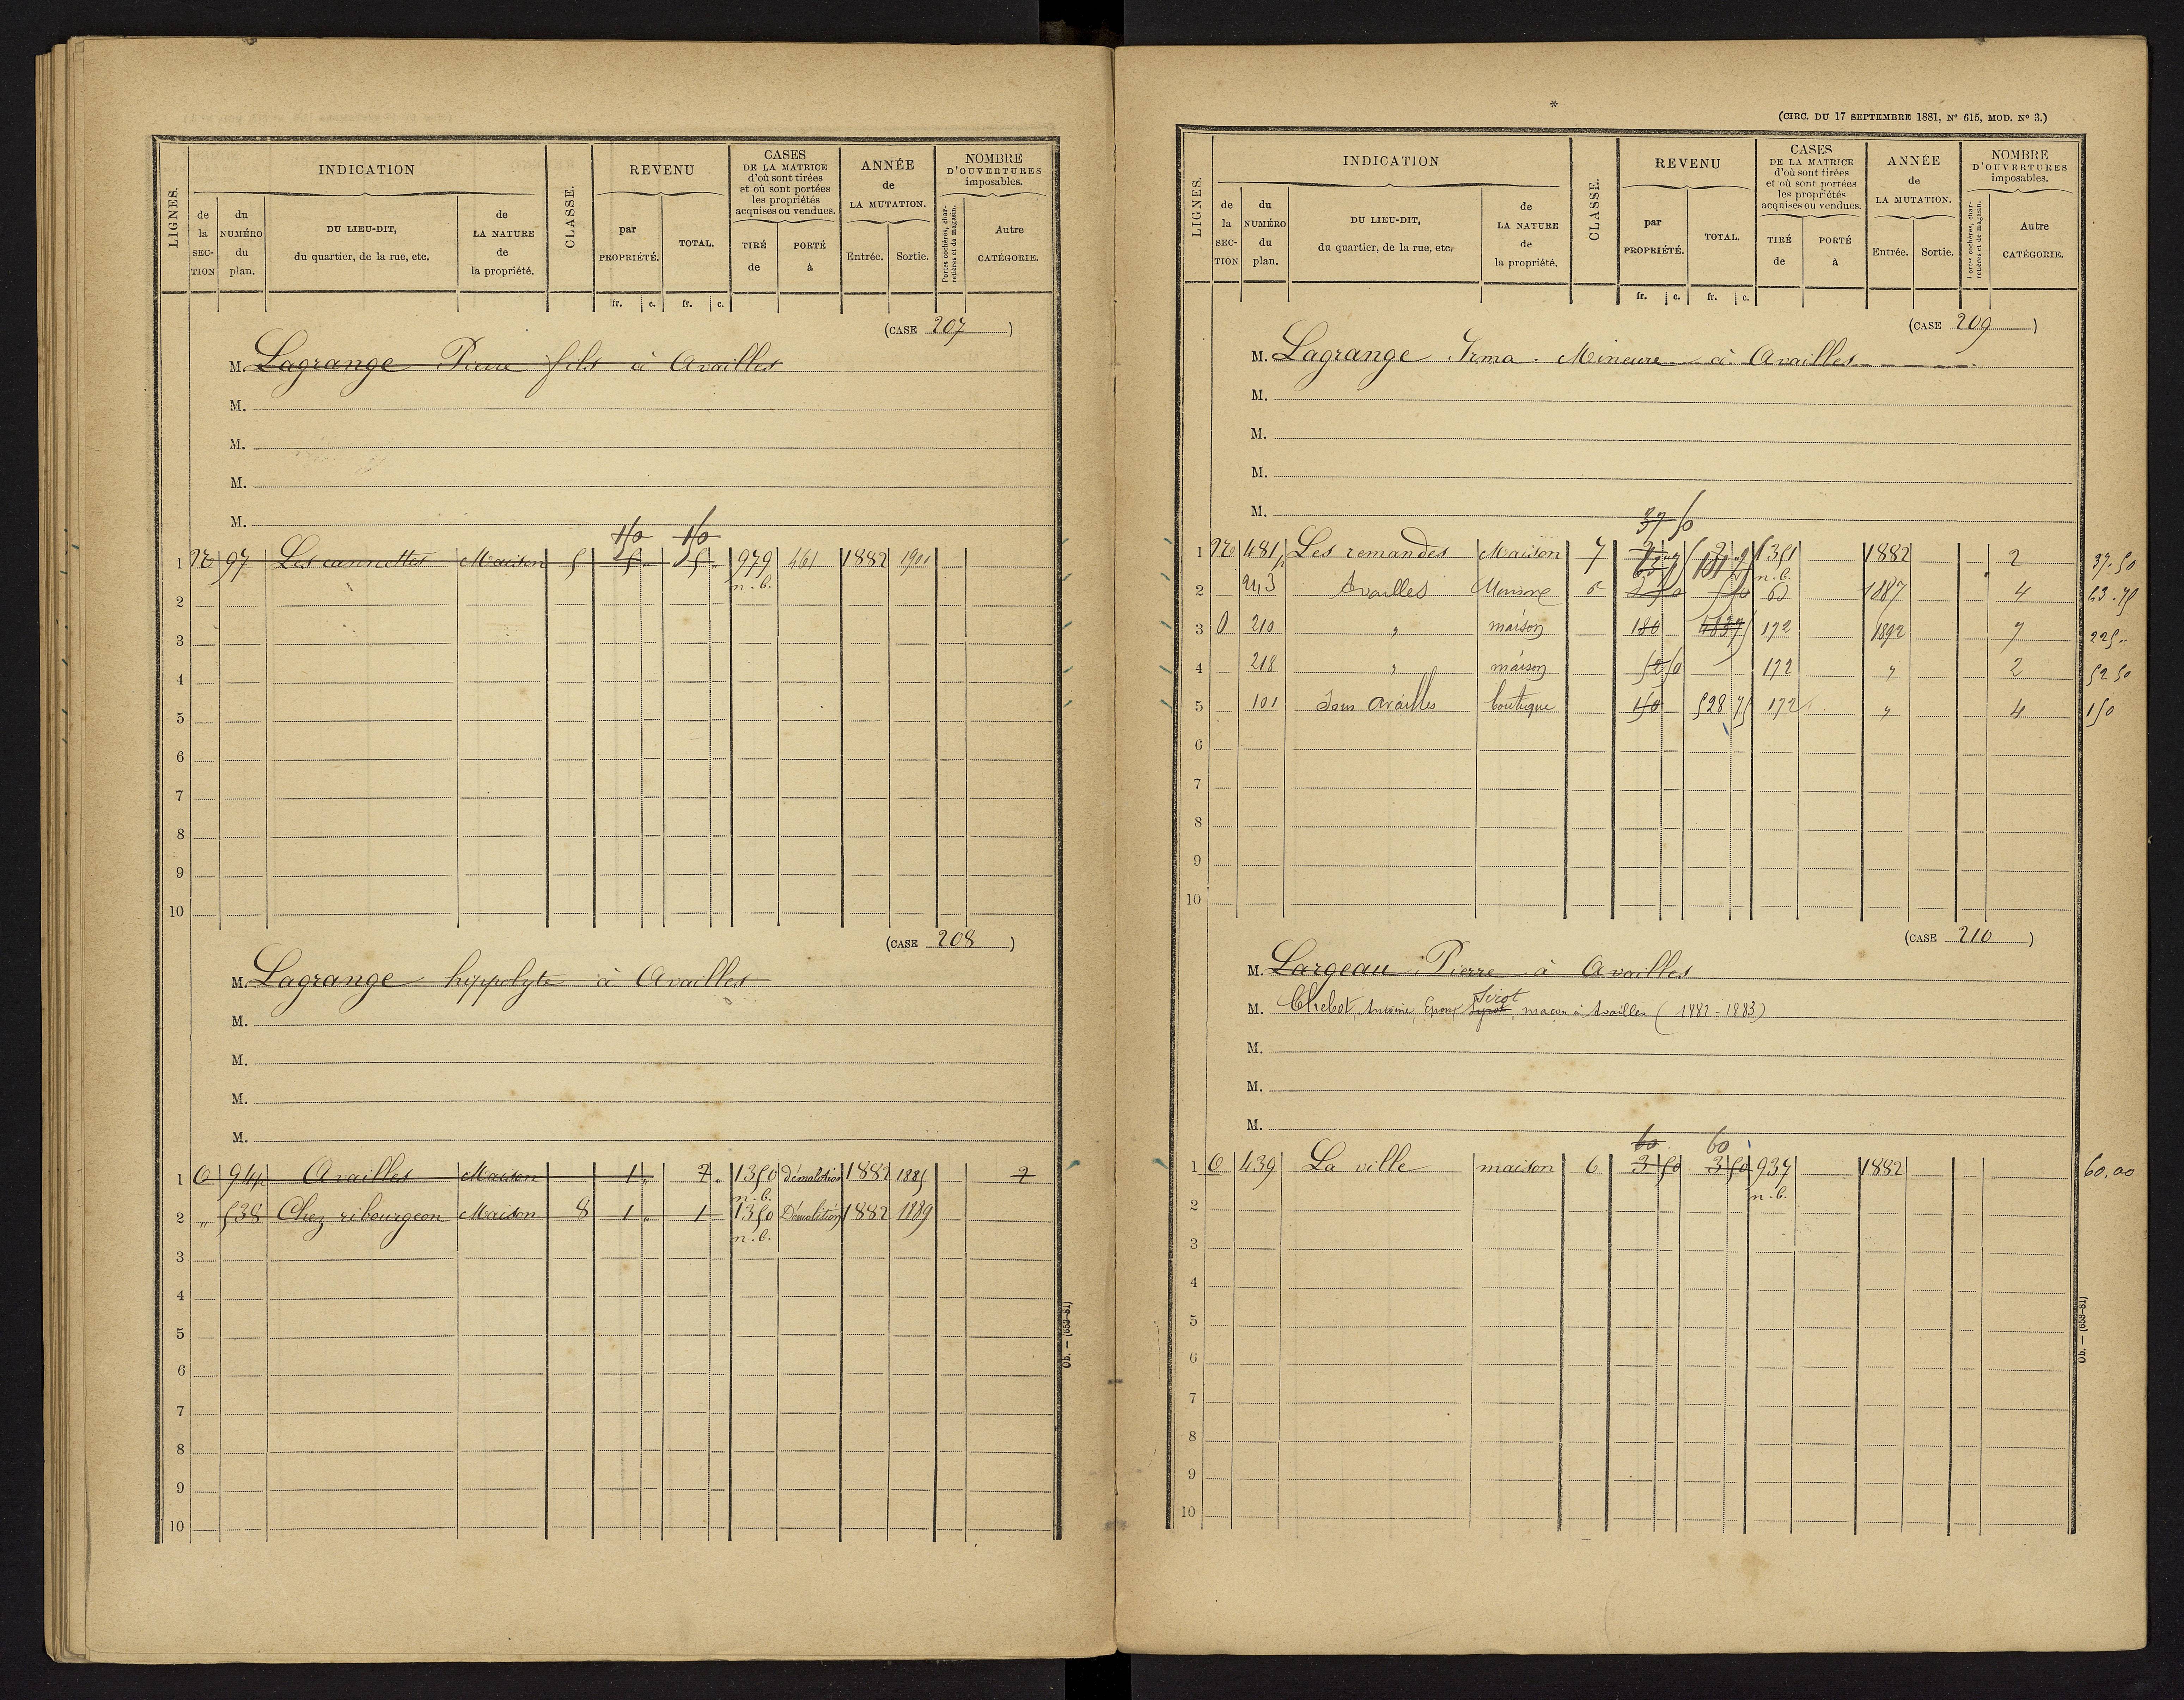 LIGNES.
INDICATION
de la SECTION
du NUMÉRO du plan.
DU LIEU-DIT,
du quartier, de la rue, etc.
de LA NATURE de la propriété.
CLASSE.
REVENU
par PROPRIÉTÉ.
TOTAL.
fr. c. fr. c.
CASES
DE LA MATRICE
d'où sont tirées
et où sont portées
les propriétés
acquises ou vendues.
TIRÉ de
PORTÉ à
ANNÉE
de
LA MUTATION.
Entrée. Sortie.
NOMBRE
D'OUVERTURES
imposables.
Portes cochères, charretières et de magasin.
Autre
CATÉGORIE.
(CASE 207)
M. Lagrange Pierre fils à Availles
M.
M.
M.
M.
150 150
1 97 Les cannettes Maison 5 979 461 1882 1901
n.b.
2
3
4
5
6
7
8
9
10
(CASE 208)
M. Lagrange hippolyte à Availles
M.
M.
M.
M.
1 O 944 Availles Maison 1 „ 2 „ 1350 Démolition 1882 1885 2
n.b.
2 „ 538 Chez ribourgeon Maison 8 1 „ 1 1350 Démolition 1882 1889
n.b.
3
4
5
6
7
8
9
10
Ob. — (659-81)
*
(CIRC. DU 17 SEPTEMBRE 1881, N° 615, MOD. N° 3.)
LIGNES.
INDICATION
de la SECTION
du NUMÉRO du plan.
DU LIEU-DIT,
du quartier, de la rue, etc.
de LA NATURE de la propriété.
CLASSE.
REVENU
par PROPRIÉTÉ.
TOTAL.
fr. c. fr. c.
CASES
DE LA MATRICE
d'où sont tirées
et où sont portées
les propriétés
acquises ou vendues.
TIRÉ de
PORTÉ à
ANNÉE
de
LA MUTATION.
Entrée. Sortie.
NOMBRE
D'OUVERTURES
imposables.
Portes cochères, charretières et de magasin.
Autre
CATÉGORIE.
(CASE 209)
M. Lagrange Irma Mineure à Availles
M.
M.
M.
M.
37 50
1 481 Les remandes Maison 7 1351 1882 2 37.50
n.b.
2 243 Availles 1887 4
3 O 210 „ maison 180 172 1892 7 225 „
4 218 „ maison 172 „ 2 52 50
5 101 Availles boutique 150 528 75 172 „ 4 150
6
7
8
9
10
(CASE 210)
M. Largeau Pierre à Availles
Sirot
M. Chebot, Antoine, Epoux, maçon à Availles (1882-1883)
M.
M.
M.
60 60
1 O 439 La ville maison 6 3 50 3 50 937 1882 60,00
n.b.
2
3
4
5
6
7
8
9
10
Ob. — (659-81)